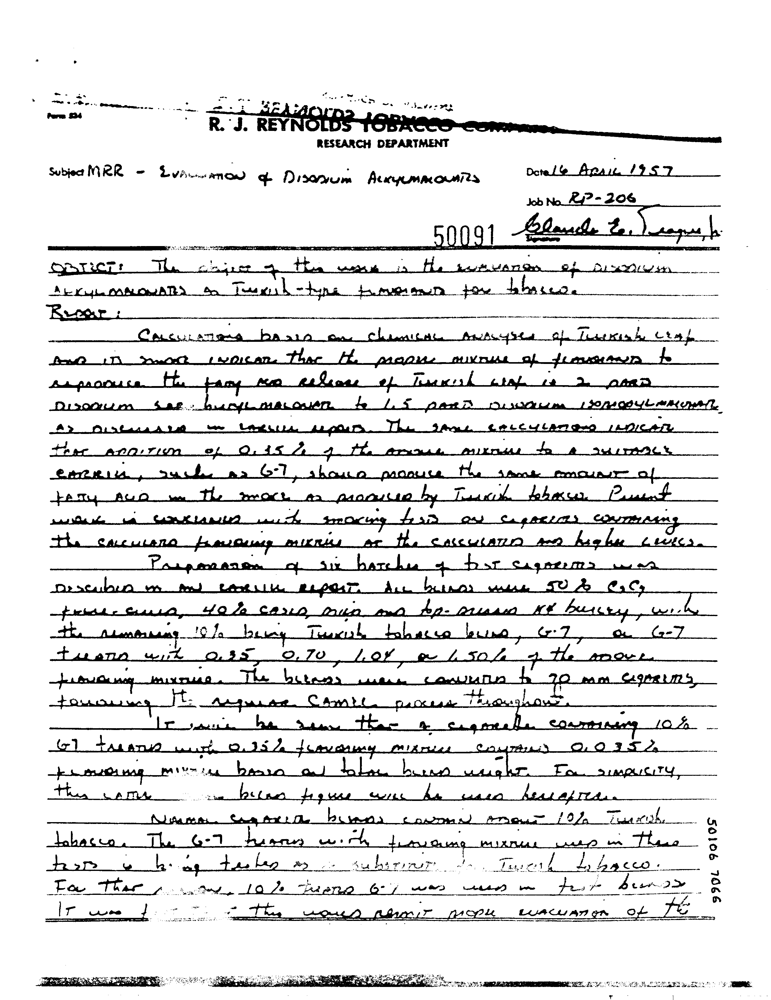 Form 524
R. J. REYNOLDS TOBACCO COMPANY
RESEARCH DEPARTMENT
Subject MRR - EVALUATION of DISODIUM ALKYLMALONATES
Date 16 APRIL 1957
Job No. RP-206
50091 Claude E. Teague, Jr.
Signature
OBJECT: The object of this work is the EVALUATION of DISODIUM
ALKYLMALONATES as Turkish-type FLAVORANTS for tobacco.
REPORT:
CALCULATIONS BASED on CHEMICAL ANALYSES of TURKISH LEAF
AND ITS SMOKE INDICATE THAT the PROPER MIXTURE of FLAVORANTS to
REPRODUCE the fatty ACID release of TURKISH LEAF is 2 PARTS
DISODIUM sec-butylMALONATE to 1.5 PARTS DISODIUM ISOPROPYLMALONATE
AS DISCUSSED in EARLIER REPORTS. The SAME CALCULATIONS INDICATE
THAT ADDITION of 0.35% of the ABOVE MIXTURE to A SUITABLE
CARRIER, such AS G-7, SHOULD PRODUCE the SAME AMOUNT of
FATTY ACID in the SMOKE AS PRODUCED by TURKISH tobacco. Present
WORK is CONCERNED with SMOKING TESTS on CIGARETTES CONTAINING
the CALCULATED FLAVORING MIXTURE AT the CALCULATED AND higher LEVELS.
PREPARATION of six batches of test CIGARETTES WAS
DESCRIBED in AN EARLIER REPORT. ALL BLENDS WERE 50%
flue-cured, 40% CASED, DRIED AND top-dressed burley, with
the REMAINING 10% being TURKISH tobacco BLEND, G-7, or G-7
TREATED with 0.35, 0.70, 1.04, or 1.50% of the ABOVE
FLAVORING MIXTURE. The BLENDS were CONVERTED to 70 mm CIGARETTES,
FOLLOWING the REGULAR CAMEL process throughout.
IT will be seen that a cigarette CONTAINING 10%
G7 TREATED with 0.35% FLAVORING MIXTURE CONTAINS 0.035%
FLAVORING MIXTURE BASED on total BLEND weight. For SIMPLICITY,
this LATTER blend figure will be used hereafter.
NORMAL CIGARETTE BLENDS CONTAIN ABOUT 10% TURKISH
tobacco. The G-7 TREATED with FLAVORING MIXTURE used in these
TESTS is being tested AS A SUBSTITUTE for TURKISH tobacco.
For THAT reason, 10% TREATED G-7 was used in test blends
IT was this would PERMIT PROPER EVALUATION of the
50106 7066